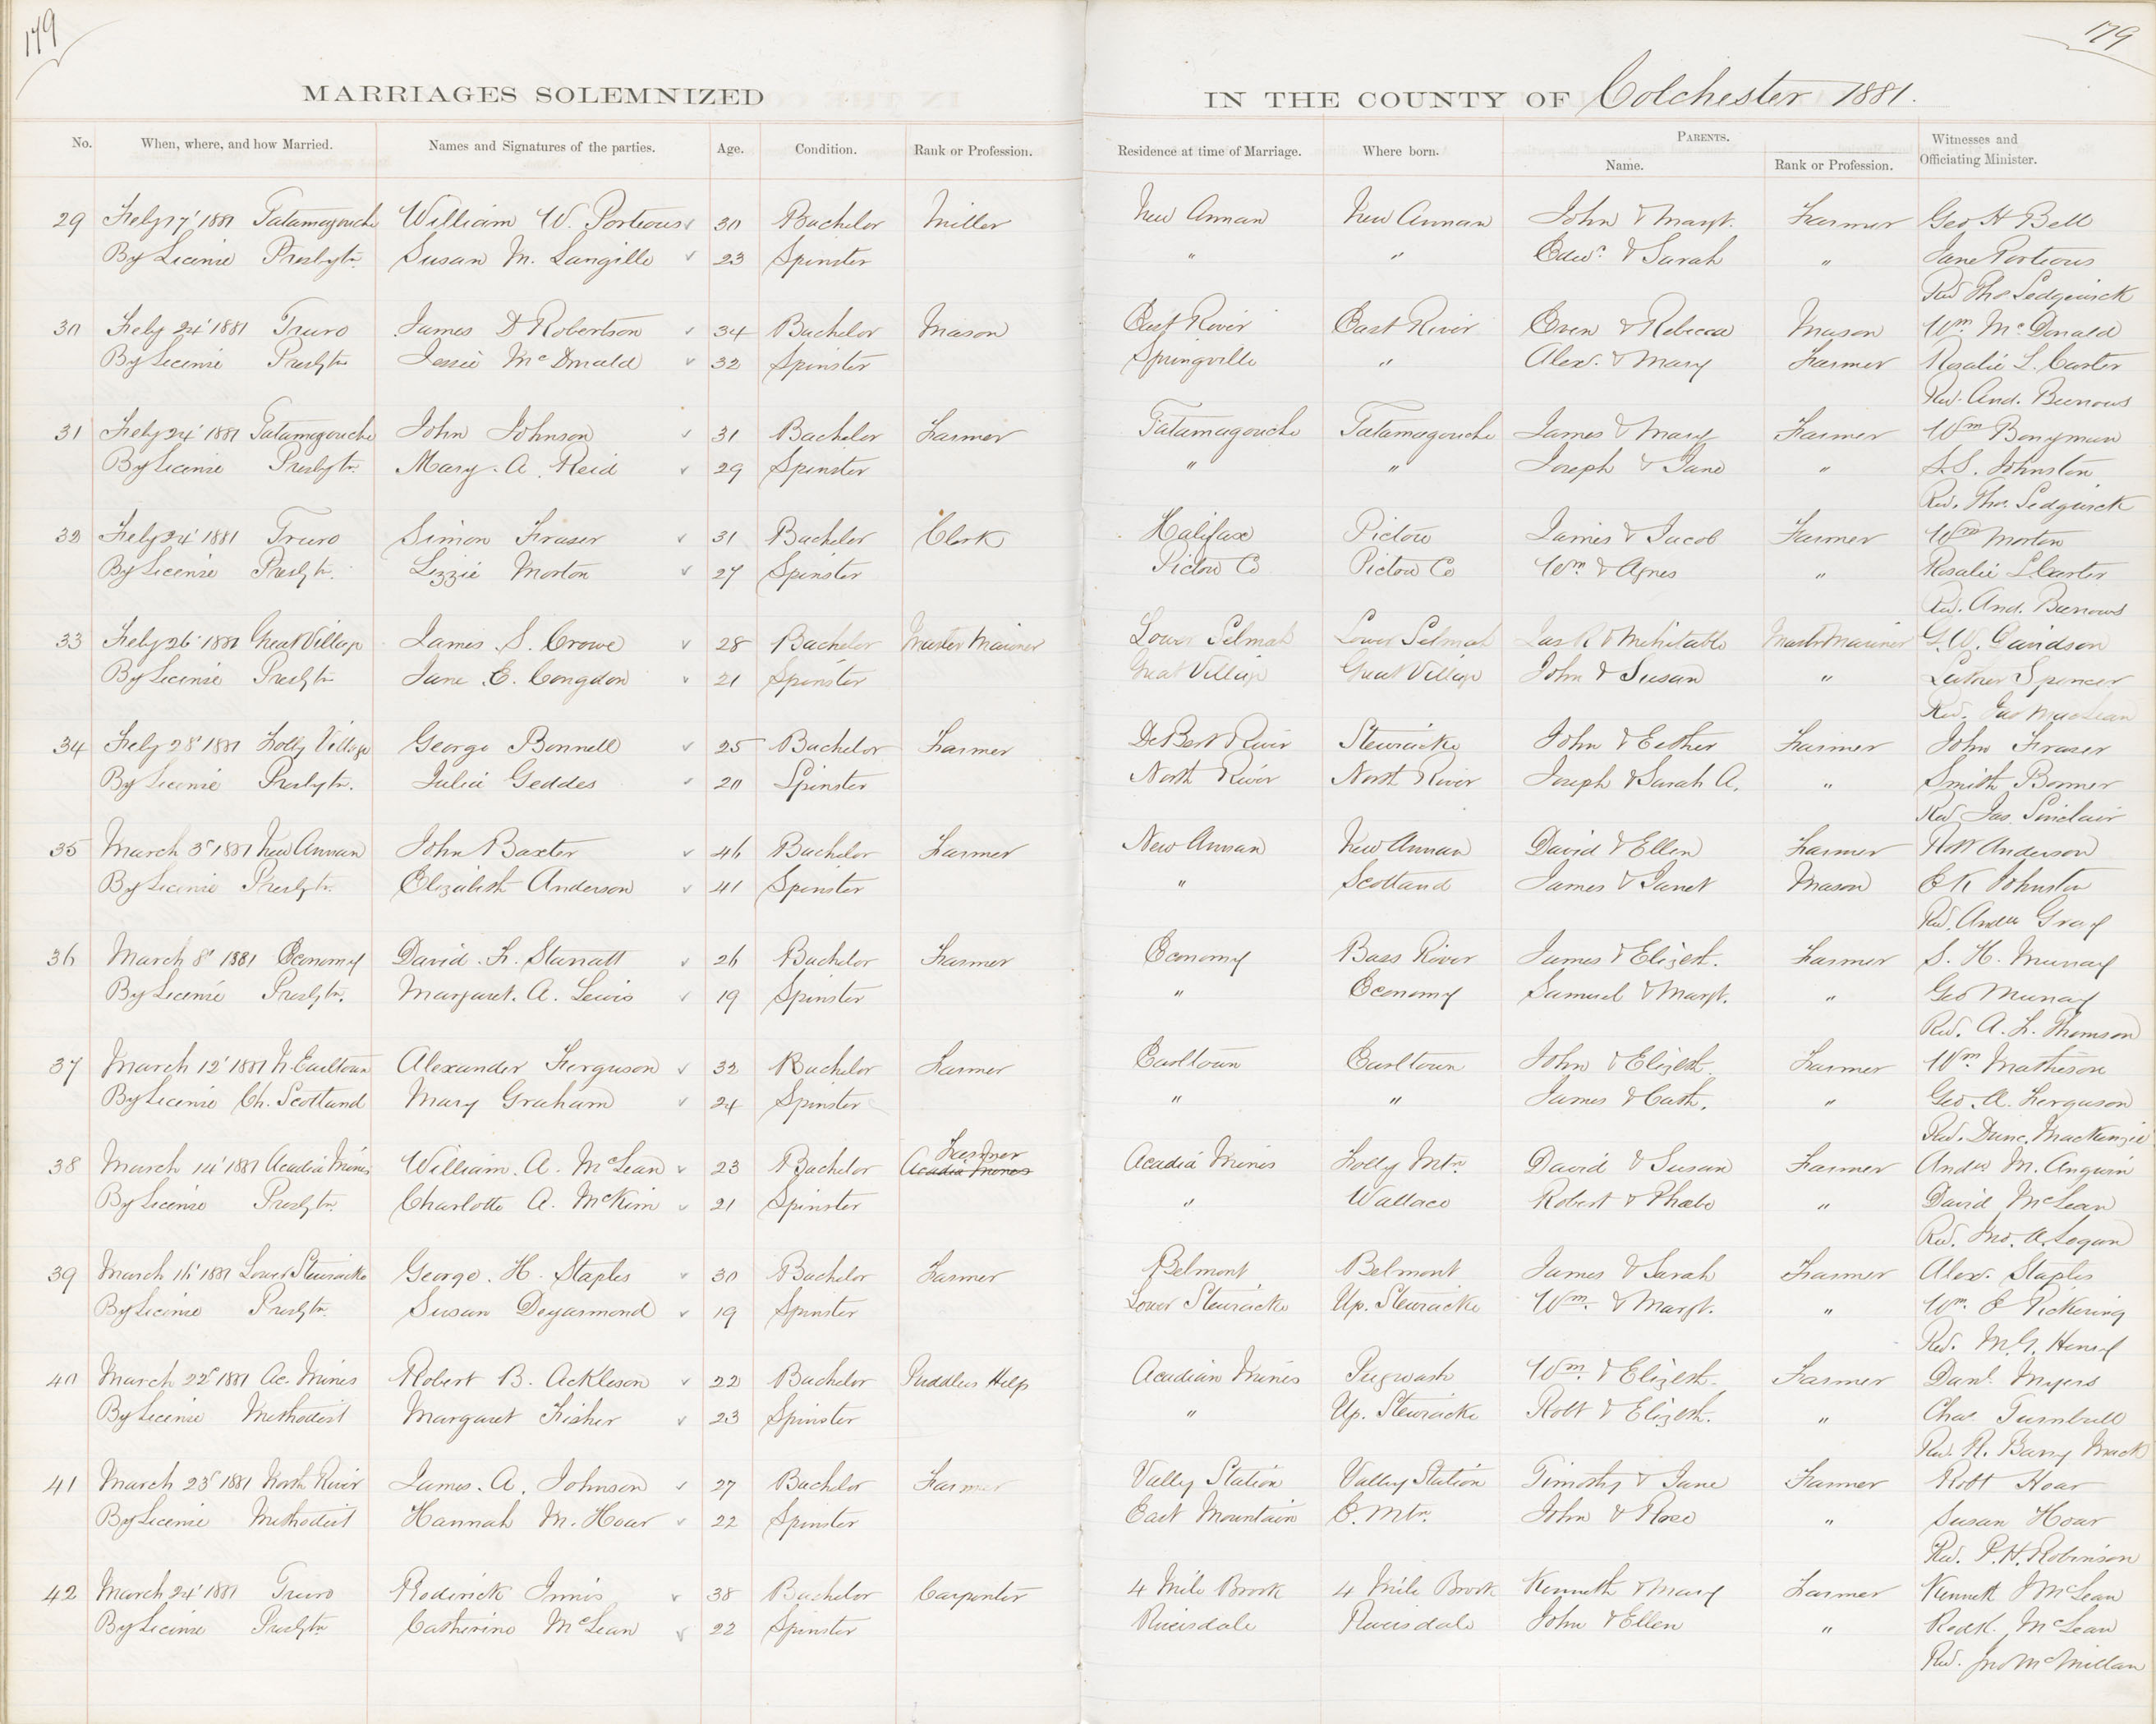 179
179
MARRIAGES SOLEMNIZED IN THE COUNTY OF Colchester 1881.
No. When, where, and how Married. Names and Signatures of the parties. Age. Condition. Rank or Profession. Residence at time of Marriage. Where born. PARENTS. Name. Rank or Profession. Witnesses and Officiating Minister.
29 Feby 17' 1881 Tatamagouche William W. Porteous 30 Bachelor Miller New Annan New Annan John & Margt. Farmer Geo H Bell
By License Presbytn. Susan M. Langille 23 Spinster " " Edwd. & Sarah " Jane Porteous
Rev Thos Sedgewick
30 Feby 24' 1881 Truro James D Robertson 34 Bachelor Mason East River East River Even & Rebecca Mason Wm. McDonald
By License Presbytn Jessie McDonald 32 Spinster Springville " Alex. & Mary Farmer Rosalie L. Carter
Rev. And. Burrows
31 Feby 24' 1881 Tatamagouche John Johnson 31 Bachelor Farmer Tatamagouche Tatamagouche James & Mary Farmer Wm Bonyman
By License Presbytn. Mary. A. Reid 29 Spinster " " Joseph & Jane " S.S. Johnston
Rev. Thos. Sedgwick
32 Feby 24' 1881 Truro Simon Fraser 31 Bachelor Clerk Halifax Pictou James & Jacob Farmer Wm Morton
By License Presbytn. Lizzie Morton 27 Spinster Pictou Co Pictou Co Wm. & Agnes " Rosalie L Carter
Rev. And. Burrows
33 Feby 26' 1881 Great Village James. S. Crowe 28 Bachelor Master Mariner Lower Selmah Lower Selmah Jas R & Mehitable Master Mariner G.W. Davidson
By License Presbytn Jane E. Congdon 21 Spinster Great Village Great Village John & Susan " Luther Spencer
Rev. Jas MacLean
34 Feby 28' 1881 Folly Village George Bonnell 25 Bachelor Farmer DeBert River Stewiacke John & Esther Farmer John Fraser
By License Presbytn. Julia Geddes 20 Spinster North River North River Joseph & Sarah A. " Smith Bonner
Rev Jas. Sinclair
35 March 3' 1881 New Annan John Baxter 46 Bachelor Farmer New Annan New Annan David & Ellen Farmer Anderson
By License Presbytn. Elizabeth Anderson 41 Spinster " Scotland James & Janet Mason E K Johnston
Rev. Andw Gray
36 March 8' 1881 Economy David. F. Starratt 26 Bachelor Farmer Economy Bass River James & Elizbth. Farmer S. H. Murray
By License Presbytn. Margaret. A. Lewis 19 Spinster " Economy Samuel & Margt. " Geo Murray
Rev. A. F. Thomson
37 March 12' 1881 N. Earltown Alexander Ferguson 32 Bachelor Farmer Earltown Earltown John & Elizbth. Farmer Wm. Matheson
By License Ch. Scotland Mary Graham 24 Spinster " " James & Cath. " Geo. A. Ferguson
Rev. Dunc. MacKenzie
38 March 14' 1881 Acadia Mines William. A. McLean 23 Bachelor Farmer Acadia Mines Acadia Mines Folly Mtn. David & Susan Farmer Andw M. Angwin
By License Presbytn. Charlotte A. McKim 21 Spinster " Wallace Robert & Phebe " David McLean
Rev. Jno. A. Logan
39 March 16' 1881 Lower Stewiacke George. H. Staples 30 Bachelor Farmer Belmont Belmont James & Sarah Farmer Alex. Staples
By License Presbytn. Susan Deyarmond 19 Spinster Lower Stewiacke Up. Stewiacke Wm. & Margt. " Wm. E Pickering
Rev. M.G. Henry
40 March 22' 1881 Ac. Mines Robert B. Ackleson 22 Bachelor Puddlers Help Acadian Mines Pugwash Wm. & Elizbth. Farmer Danl. Myers
By License Methodist Margaret Fisher 23 Spinster " Up. Stewiacke Robt & Elizbth. " Chas. Turnbull
Rev. R. Barry Mack
41 March 23' 1881 North River James. A. Johnson 27 Bachelor Farmer Vally Station Valley Station Timothy & Jane Farmer Robt Hoar
By License Methodist Hannah M. Hoar 22 Spinster East Mountain E. Mtn. John & Rose " Susan Hoar
Rev. P.H. Robinson
42 March 24' 1881 Truro Roderick Innis 38 Bachelor Carpenter 4 Mile Brook 4 Mile Brook Kenneth & Mary Farmer Kenneth J McLean
By License Presbytn Catherine McLean 22 Spinster Riversdale Riversdale John & Ellen " Redk. McLean
Rev. Jno McMillan